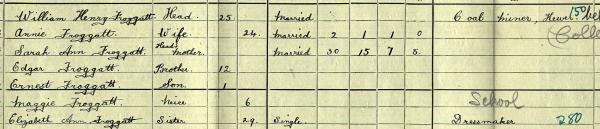 William Henry Froggatt Head. 25 Married Coal miner, Hewer. 150
Annie Froggatt Wife 24. Married 2 1 1 0
Sarah Ann Froggatt. Head's Mother. Married 30 15 7 8.
Edgar Froggatt. Brother. 12
Ernest Froggatt. Son. 1
Maggie Froggatt. Niece. 6 School
Elizabeth Ann Froggatt Sister 29. Single. Dressmaker 280